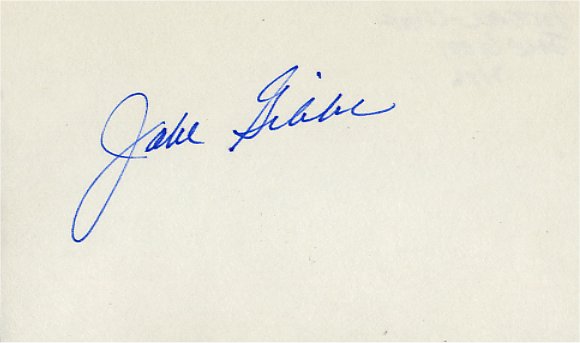 Jake Gibbs